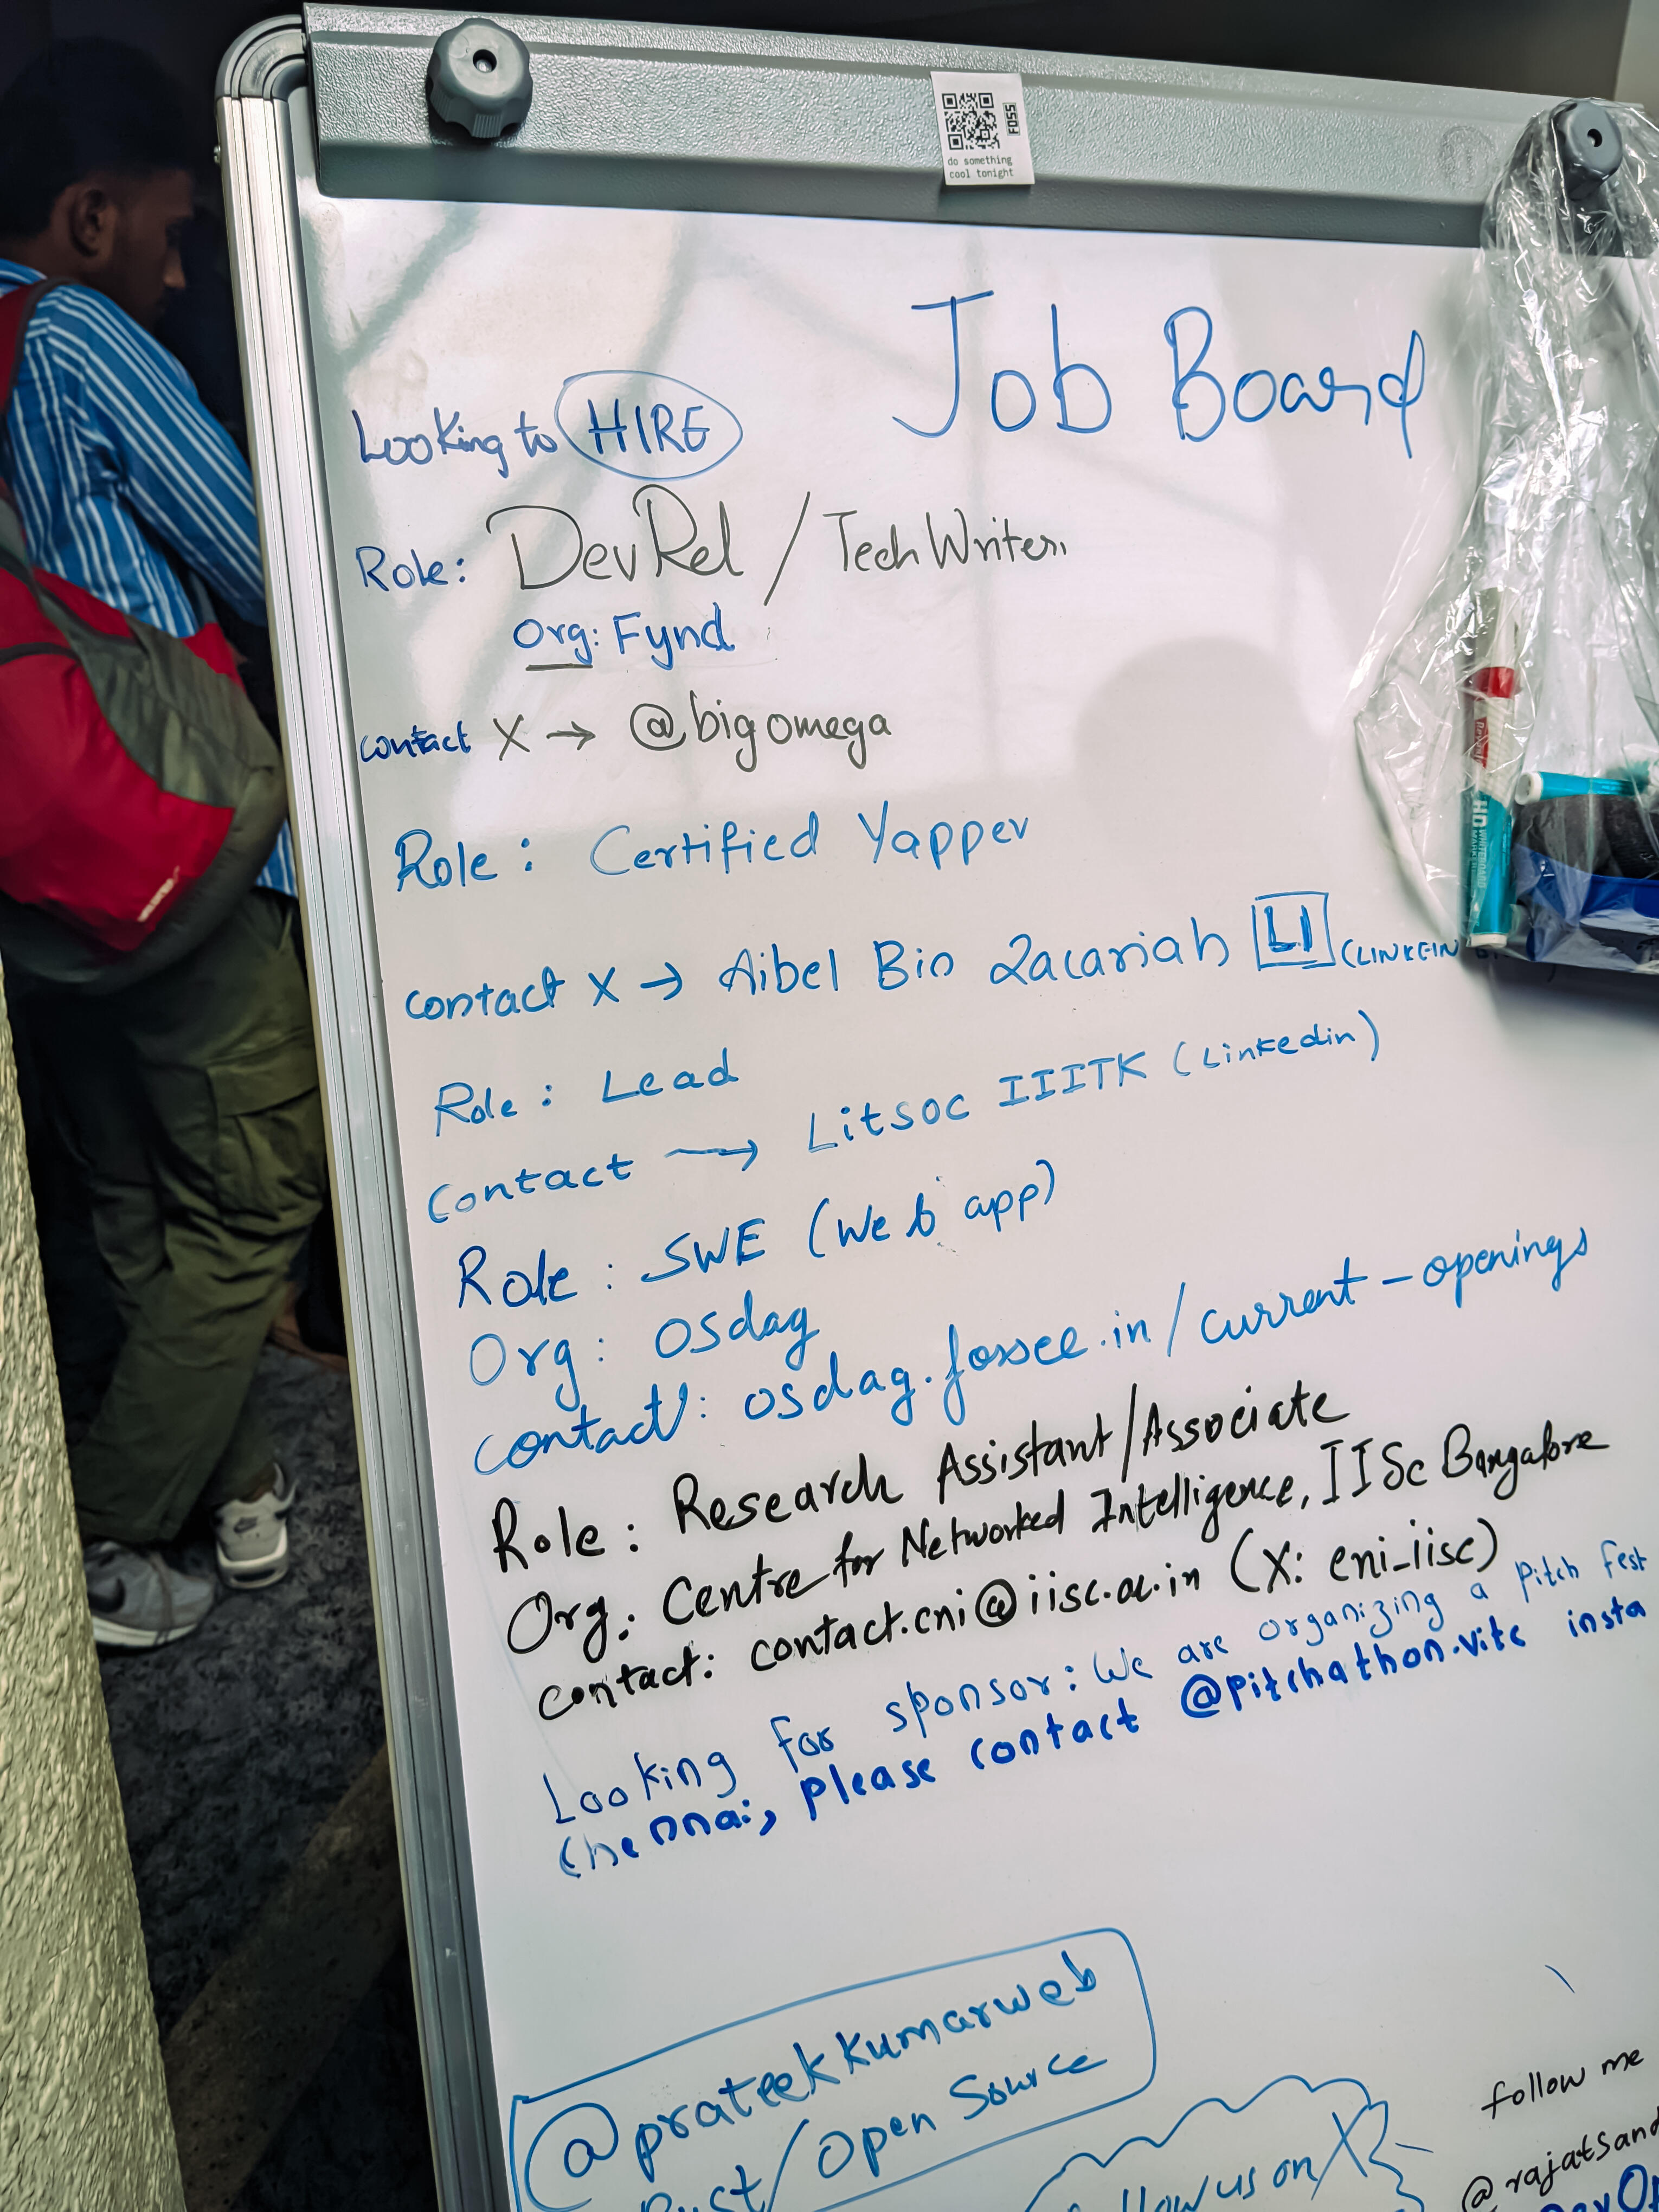 FOSS
do something
cool tonight
Job Board
Looking to HIRE
Role: DevRel / Tech Writer
Org: Fynd
contact X → @bigomega
Role: Certified Yapper
contact X → Aibel Bin Zacariah LI (LINKEIN
Role: Lead
contact → Litsoc IIITK (Linkedin)
Role: SWE (Web app)
Org: Osdag
contact: osdag.fossee.in/current-openings
Role: Research Assistant/Associate
Org: Centre for Networked Intelligence, IISc Bangalore
contact: contact.cni@iisc.ac.in (X: cni_iisc)
Looking for sponsor: We are organizing a pitch fest
Chennai, please contact @pitchathon.vitc insta
@prateekkumarweb
Rust/Open Source
follow me
us on X